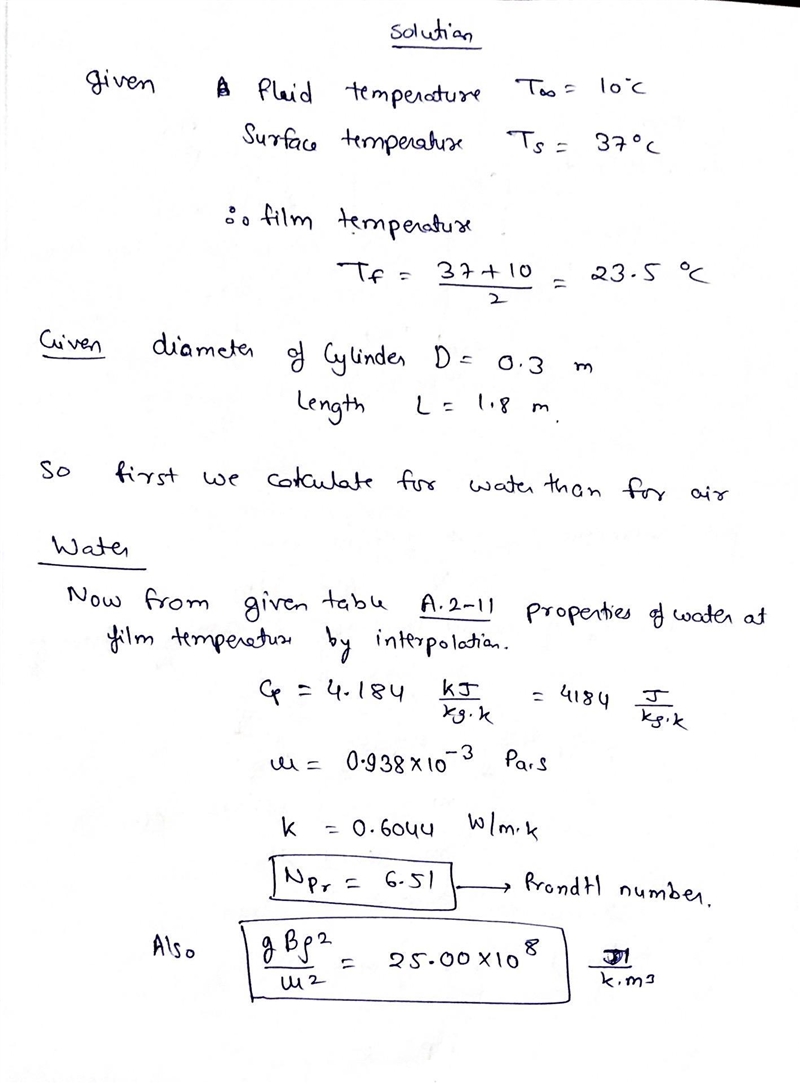 Solution
given fluid temperature T∞ = 10°C
Surface temperature Ts = 37°C
∴ film temperature
Tf = (37+10)/2 = 23.5 °C
Given diameter of Cylinder D = 0.3 m
Length L = 1.8 m.
So first we calculate for water than for air
Water
Now from given table A.2-11 properties of water at
film temperature by interpolation.
Cp = 4.184 kJ/kg.k = 4184 J/kg.k
μ = 0.938×10⁻³ Pa.s
k = 0.6044 W/m.k
NPr = 6.51 → Prandtl number.
Also gβρ²/μ² = 25.00×10⁸ 1/k.m³